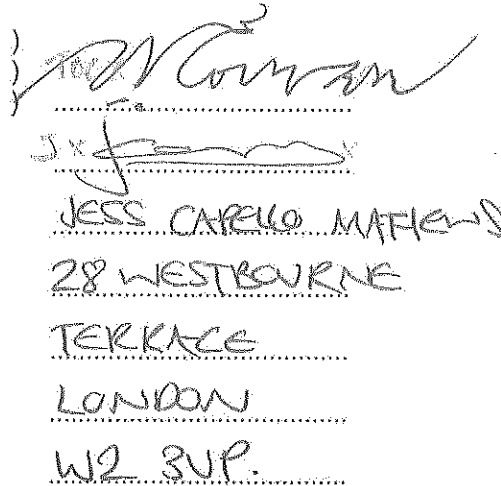 JESS CAPELLO MATHEWS
28 WESTBOURNE
TERRACE
LONDON
W2 3UP.